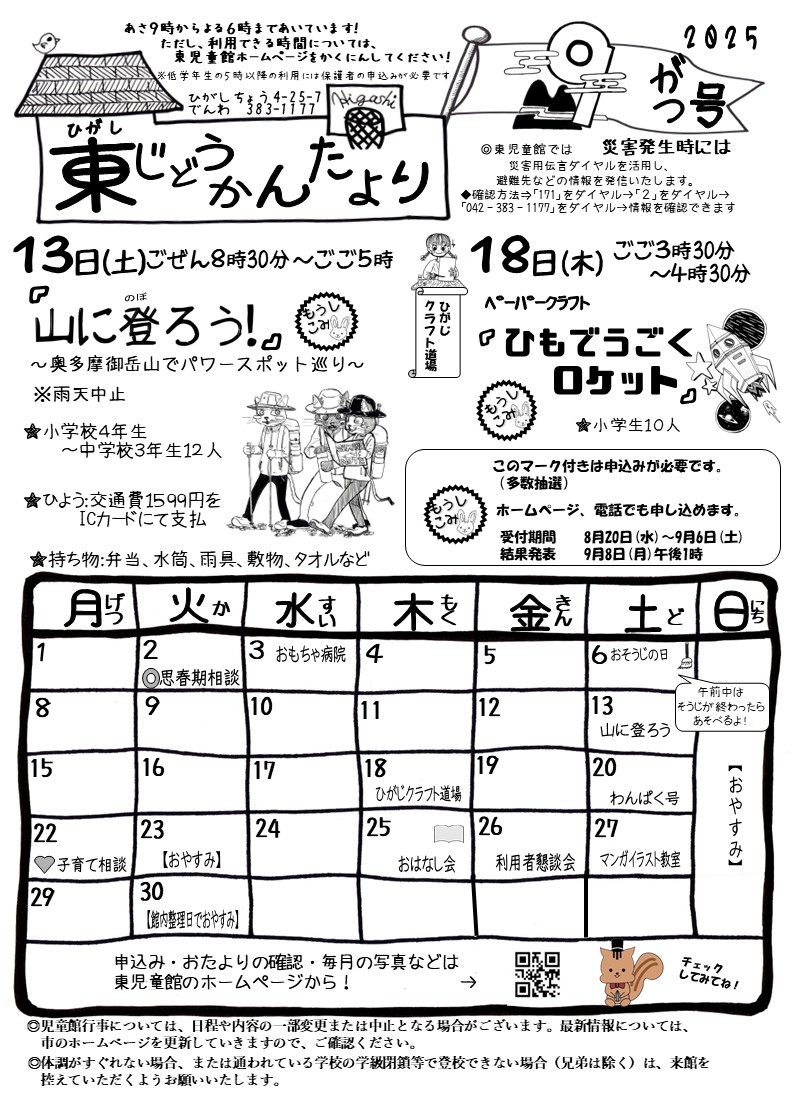 あさ9時からよる6時まであいています!
ただし、利用できる時間については、
東児童館ホームページをかくにんしてください!
※低学年生の5時以降の利用には保護者の申込みが必要です
ひがしちょう4-25-7
でんわ 383-1177
Higashi
ひがし
東じどうかんたより
2025
9がつ号
◎東児童館では 災害発生時には
災害用伝言ダイヤルを活用し、
避難先などの情報を発信いたします。
◆確認方法⇒「171」をダイヤル→「2」をダイヤル→
「042-383-1177」をダイヤル→情報を確認できます
13日(土)ごぜん8時30分~ごご5時
『山に登ろう!』
のぼ
もうしこみ
~奥多摩御岳山でパワースポット巡り~
※雨天中止
★小学校4年生
~中学校3年生12人
★ひよう:交通費1599円を
ICカードにて支払
★持ち物:弁当、水筒、雨具、敷物、タオルなど
ひがじ
クラフト道場
18日(木) ごご3時30分
~4時30分
ペーパークラフト
『ひもでうごく
ロケット』
もうしこみ
★小学生10人
もうしこみ
このマーク付きは申込みが必要です。
(多数抽選)
ホームページ、電話でも申し込めます。
受付期間 8月20日(水)~9月6日(土)
結果発表 9月8日(月)午後1時
月げつ 火か 水すい 木もく 金きん 土ど 日にち
1 2 3 おもちゃ病院 4 5 6 おそうじの日
◎思春期相談
午前中は
そうじが終わったら
あそべるよ!
8 9 10 11 12 13
山に登ろう
15 16 17 18 19 20
ひがじクラフト道場 わんぱく号
【おやすみ】
22 23 24 25 26 27
子育て相談 【おやすみ】 おはなし会 利用者懇談会 マンガイラスト教室
29 30
【館内整理日でおやすみ】
申込み・おたよりの確認・毎月の写真などは
東児童館のホームページから! →
チェック
してみてね!
◎児童館行事については、日程や内容の一部変更または中止となる場合がございます。最新情報については、
市のホームページを更新していきますので、ご確認ください。
◎体調がすぐれない場合、または通われている学校の学級閉鎖等で登校できない場合(兄弟は除く)は、来館を
控えていただくようお願いいたします。